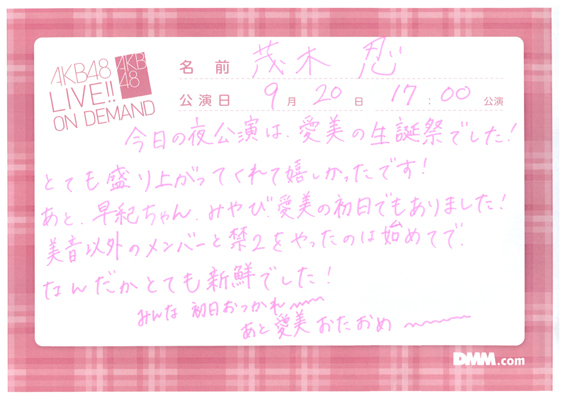 AKB48
LIVE!!
ON DEMAND
AKB
48
名前 茂木 忍
公演日 9月20日 17:00公演
今日の夜公演は、愛美の生誕祭でした!
とても盛り上がってくれて嬉しかったです!
あと、早紀ちゃん、みやび、愛美の初日でもありました!
美音以外のメンバーと禁2をやったのは始めてで、
なんだかとても新鮮でした!
みんな 初日おつかれ〜〜
あと愛美おたおめ 〜〜〜
DMM.com